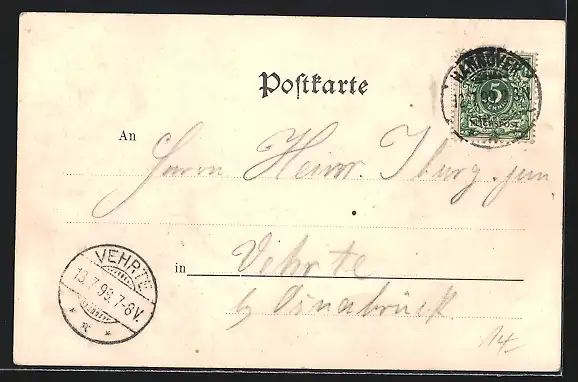 Postkarte
HANNOVER
5
REICHSPOST
An
Herrn Heinr. Iburg jun
in Vehrte
b/ Osnabrück
VEHRTE
13.7.99.7-8V.
14.-